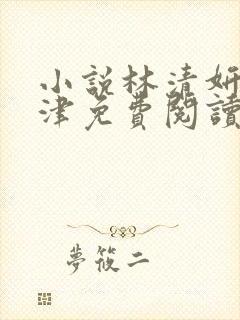 小說林清妍
津免費閱讀
夢筱二